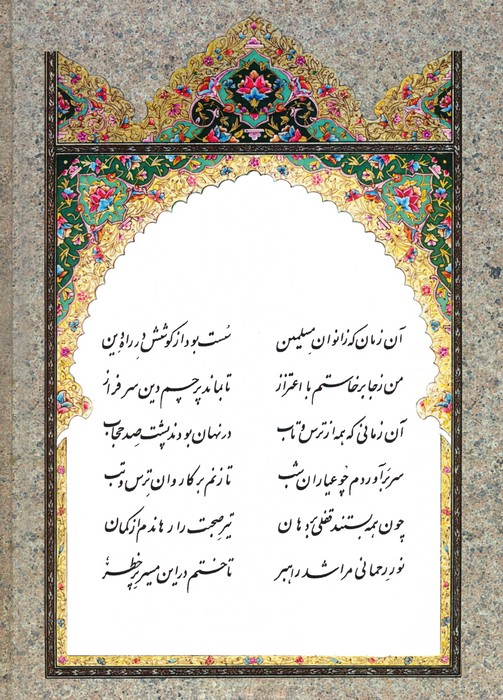 آن زمان که زانوان مسلمین سست بود از کوشش در راه دین
من ز جا برخاستم با اعتزاز تا بماند پرچم دین سرفراز
آن زمانی که همه از ترس و تاب در نهان بودند پشت صد حجاب
سر برآوردم چو عیاران شب تا زنم بر کاروان ترس و تب
چون همه بستند قفلی بر دهان تیر صحبت را رهاندم از کمان
نور رحمانی مرا شد راهبر تا ختم در این مسیر پر خطر